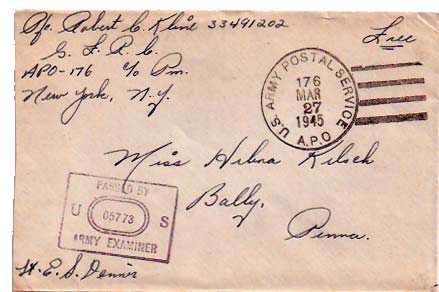 Pfc. Robert C. Kline 33491202
G. F. R. C.
APO-176 c/o Pm.
New York, N.Y.
Free
U.S. ARMY POSTAL SERVICE
176
MAR
27
1945
A.P.O.
Miss Hilena Kilsch
Bally,
Penna.
PASSED BY
U 05773 S
ARMY EXAMINER
Lt. E. S. Dennis